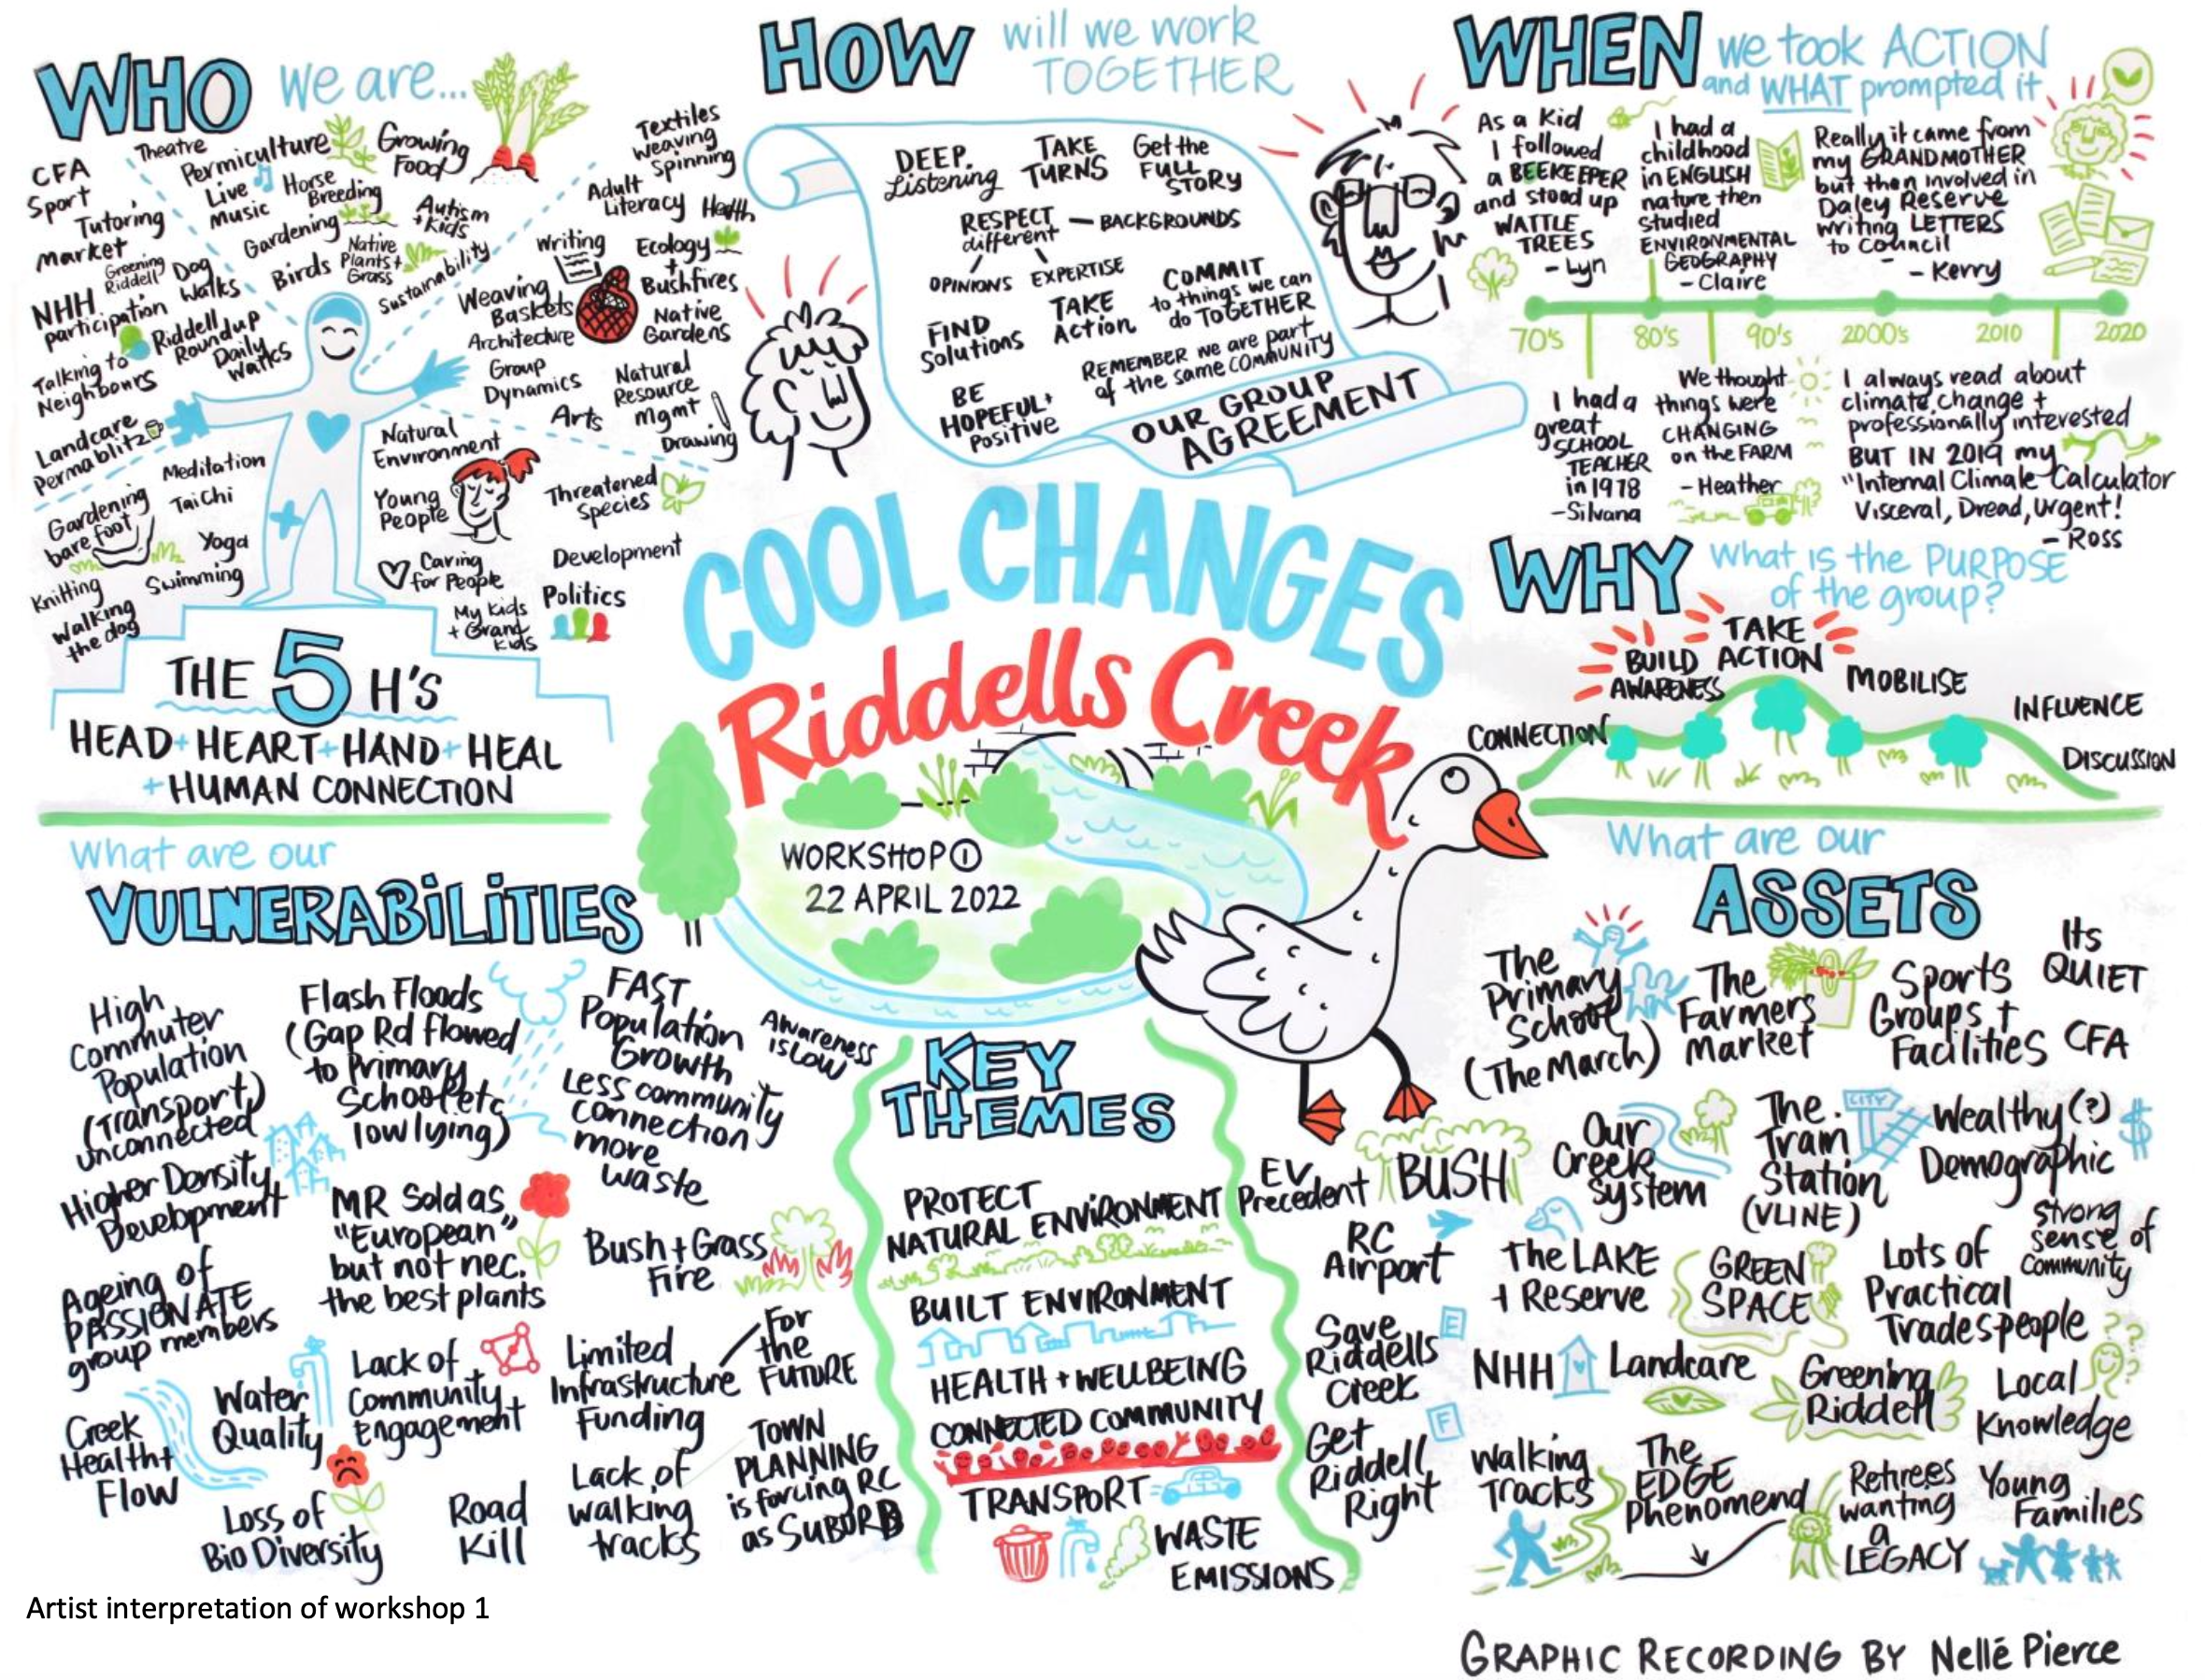 WHO we are...
CFA
Sport
Theatre
Permiculture
Growing
Food
Tutoring
Live
music
Horse
Breeding
market
Greening
Riddell
Dog
Walks
Gardening
Autism
+ Kids
Birds
Native
Plants +
Grass
Sustainability
NHH
participation
Riddell
Roundup
Daily
Walks
Talking to
Neighbours
Landcare
Permablitz
Textiles
weaving
Spinning
Adult
Literacy
Health
Writing
Ecology
+
Bushfires
Weaving
Baskets
Native
Gardens
Architecture
Group
Dynamics
Natural
Resource
mgmt
Arts
Drawing
Natural
Environment
Meditation
Tai Chi
Gardening
bare foot
Yoga
Knitting
Swimming
Walking
the dog
Young
People
Threatened
Species
Caring
for People
Development
My Kids
+ Grand
Kids
Politics
THE 5 H'S
HEAD + HEART + HAND + HEAL
+ HUMAN CONNECTION
HOW will we work
TOGETHER
DEEP
Listening
TAKE
TURNS
Get the
FULL
STORY
RESPECT
different
— BACKGROUNDS
OPINIONS
EXPERTISE
FIND
Solutions
TAKE
Action
COMMIT
to things we can
do TOGETHER
BE
HOPEFUL +
Positive
REMEMBER we are part
of the same COMMUNITY
OUR GROUP
AGREEMENT
WHEN we took ACTION
and WHAT prompted it
As a Kid
I followed
a BEEKEEPER
and stood up
WATTLE
TREES
- Lyn
I had a
childhood
in ENGLISH
nature then
studied
ENVIRONMENTAL
GEOGRAPHY
- Claire
Really it came from
my GRANDMOTHER
but then involved in
Daley Reserve
writing LETTERS
to Council
- Kerry
70's 80's 90's 2000's 2010 2020
I had a
great
SCHOOL
TEACHER
in 1978
- Silvana
We thought
things were
CHANGING
on the FARM
- Heather
I always read about
climate change +
professionally interested
BUT IN 2019 my
"Internal Climate Calculator
Visceral, Dread, Urgent!
- Ross
COOL CHANGES
Riddells Creek
WORKSHOP 1
22 APRIL 2022
WHY What is the PURPOSE
of the group?
CONNECTION
BUILD
AWARENESS
TAKE
ACTION
MOBILISE
INFLUENCE
DISCUSSION
What are our
VULNERABILITIES
High
Commuter
Population
(Transport)
unconnected
Flash Floods
(Gap Rd flowed
to Primary
School etc
low lying)
FAST
Population
Growth
Less community
connection
more
waste
Awareness
is Low
Higher Density
Development
MR Sold as
"European"
but not nec.
the best plants
Bush + Grass
Fire
Ageing of
PASSIONATE
group members
Water
Quality
Lack of
Community
Engagement
Limited
Infrastructure
Funding
For
the
FUTURE
Creek
Health +
Flow
Loss of
Bio Diversity
Road
Kill
Lack of
walking
tracks
TOWN
PLANNING
is forcing RC
as SUBURB
KEY
THEMES
PROTECT
NATURAL ENVIRONMENT
BUILT ENVIRONMENT
HEALTH + WELLBEING
CONNECTED COMMUNITY
TRANSPORT
WASTE
EMISSIONS
What are our
ASSETS
The
Primary
School
(The March)
The
Farmers
Market
Sports
Groups +
Facilities
Its
QUIET
CFA
EV
Precedent
BUSH
Our
Creek
System
The
Train
Station
(VLINE)
CITY
Wealthy (?)
Demographic
$
RC
Airport
The LAKE
+ Reserve
GREEN
SPACE
Lots of
Practical
Tradespeople
Strong
sense of
Community
Save
Riddells
Creek
E
NHH
Landcare
Greening
Riddell
Local
Knowledge
? ?
?
Get
Riddell
Right
F
Walking
Tracks
The
EDGE
Phenomend
Retirees
wanting
a
LEGACY
Young
Families
Artist interpretation of workshop 1
GRAPHIC RECORDING BY Nellé Pierce